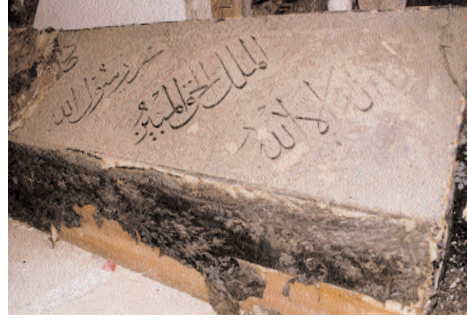 لا إله إلا الله
الملك الحق المبين
محمد رسول الله